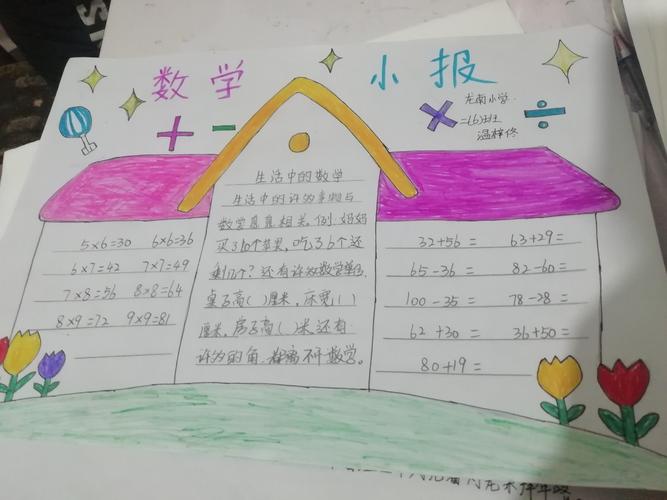 数学 小报
龙南小学
二(6)班
温梓佟
+ - × ÷
5×6=30 6×6=36
6×7=42 7×7=49
7×8=56 8×8=64
8×9=72 9×9=81
生活中的数学
生活中的许多事物与
数学息息相关,例,妈妈
买了10个苹果,吃了6个还
剩几个?还有许多数学单位,
桌子高( )厘米,床宽( )
厘米,房子高( )米,还有
许多的角,都离不开数学。
32+56= 63+29=
65-36= 82-60=
100-35= 78-28=
62+30= 36+50=
80+19=